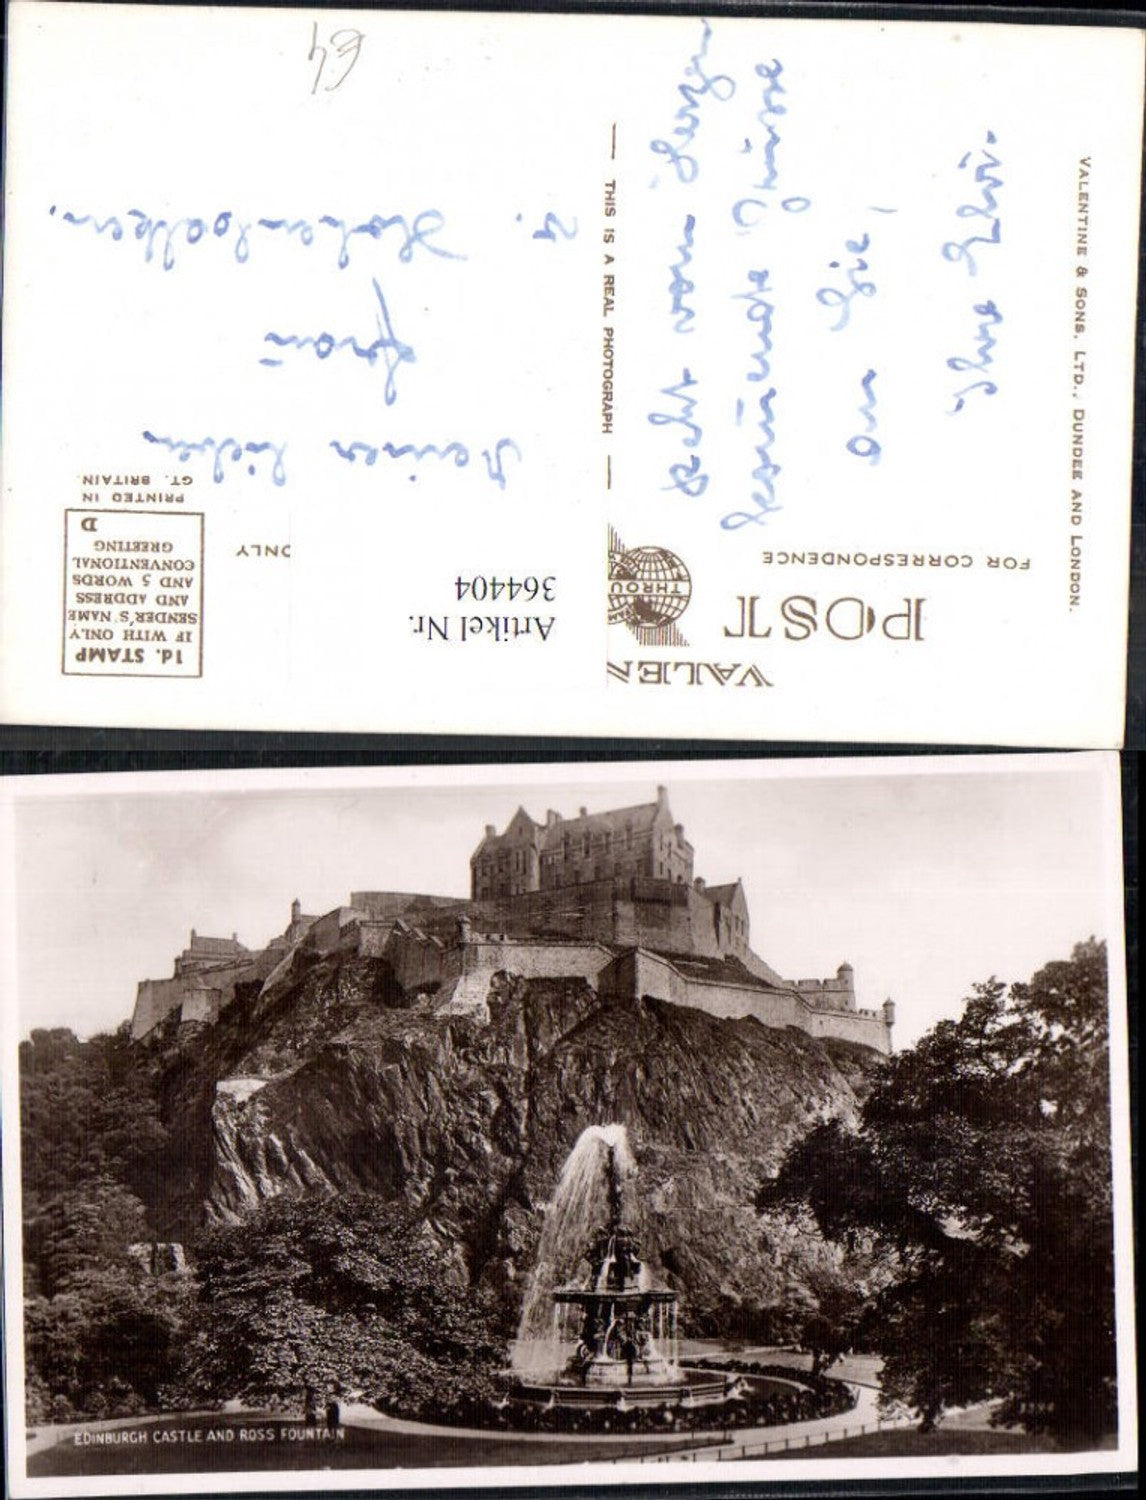 VALEN
POST
FOR CORRESPONDENCE
THROU
ONLY
Artikel Nr.
364404
1d. STAMP
IF WITH ONLY
SENDER'S NAME
AND ADDRESS
AND 5 WORDS
CONVENTIONAL
GREETING
D
PRINTED IN
GT. BRITAIN.
THIS IS A REAL PHOTOGRAPH
VALENTINE & SONS, LTD., DUNDEE AND LONDON.
Recht vom Herzen
an Sie,
Ihre
Meiner lieben
Frau
£4
EDINBURGH CASTLE AND ROSS FOUNTAIN